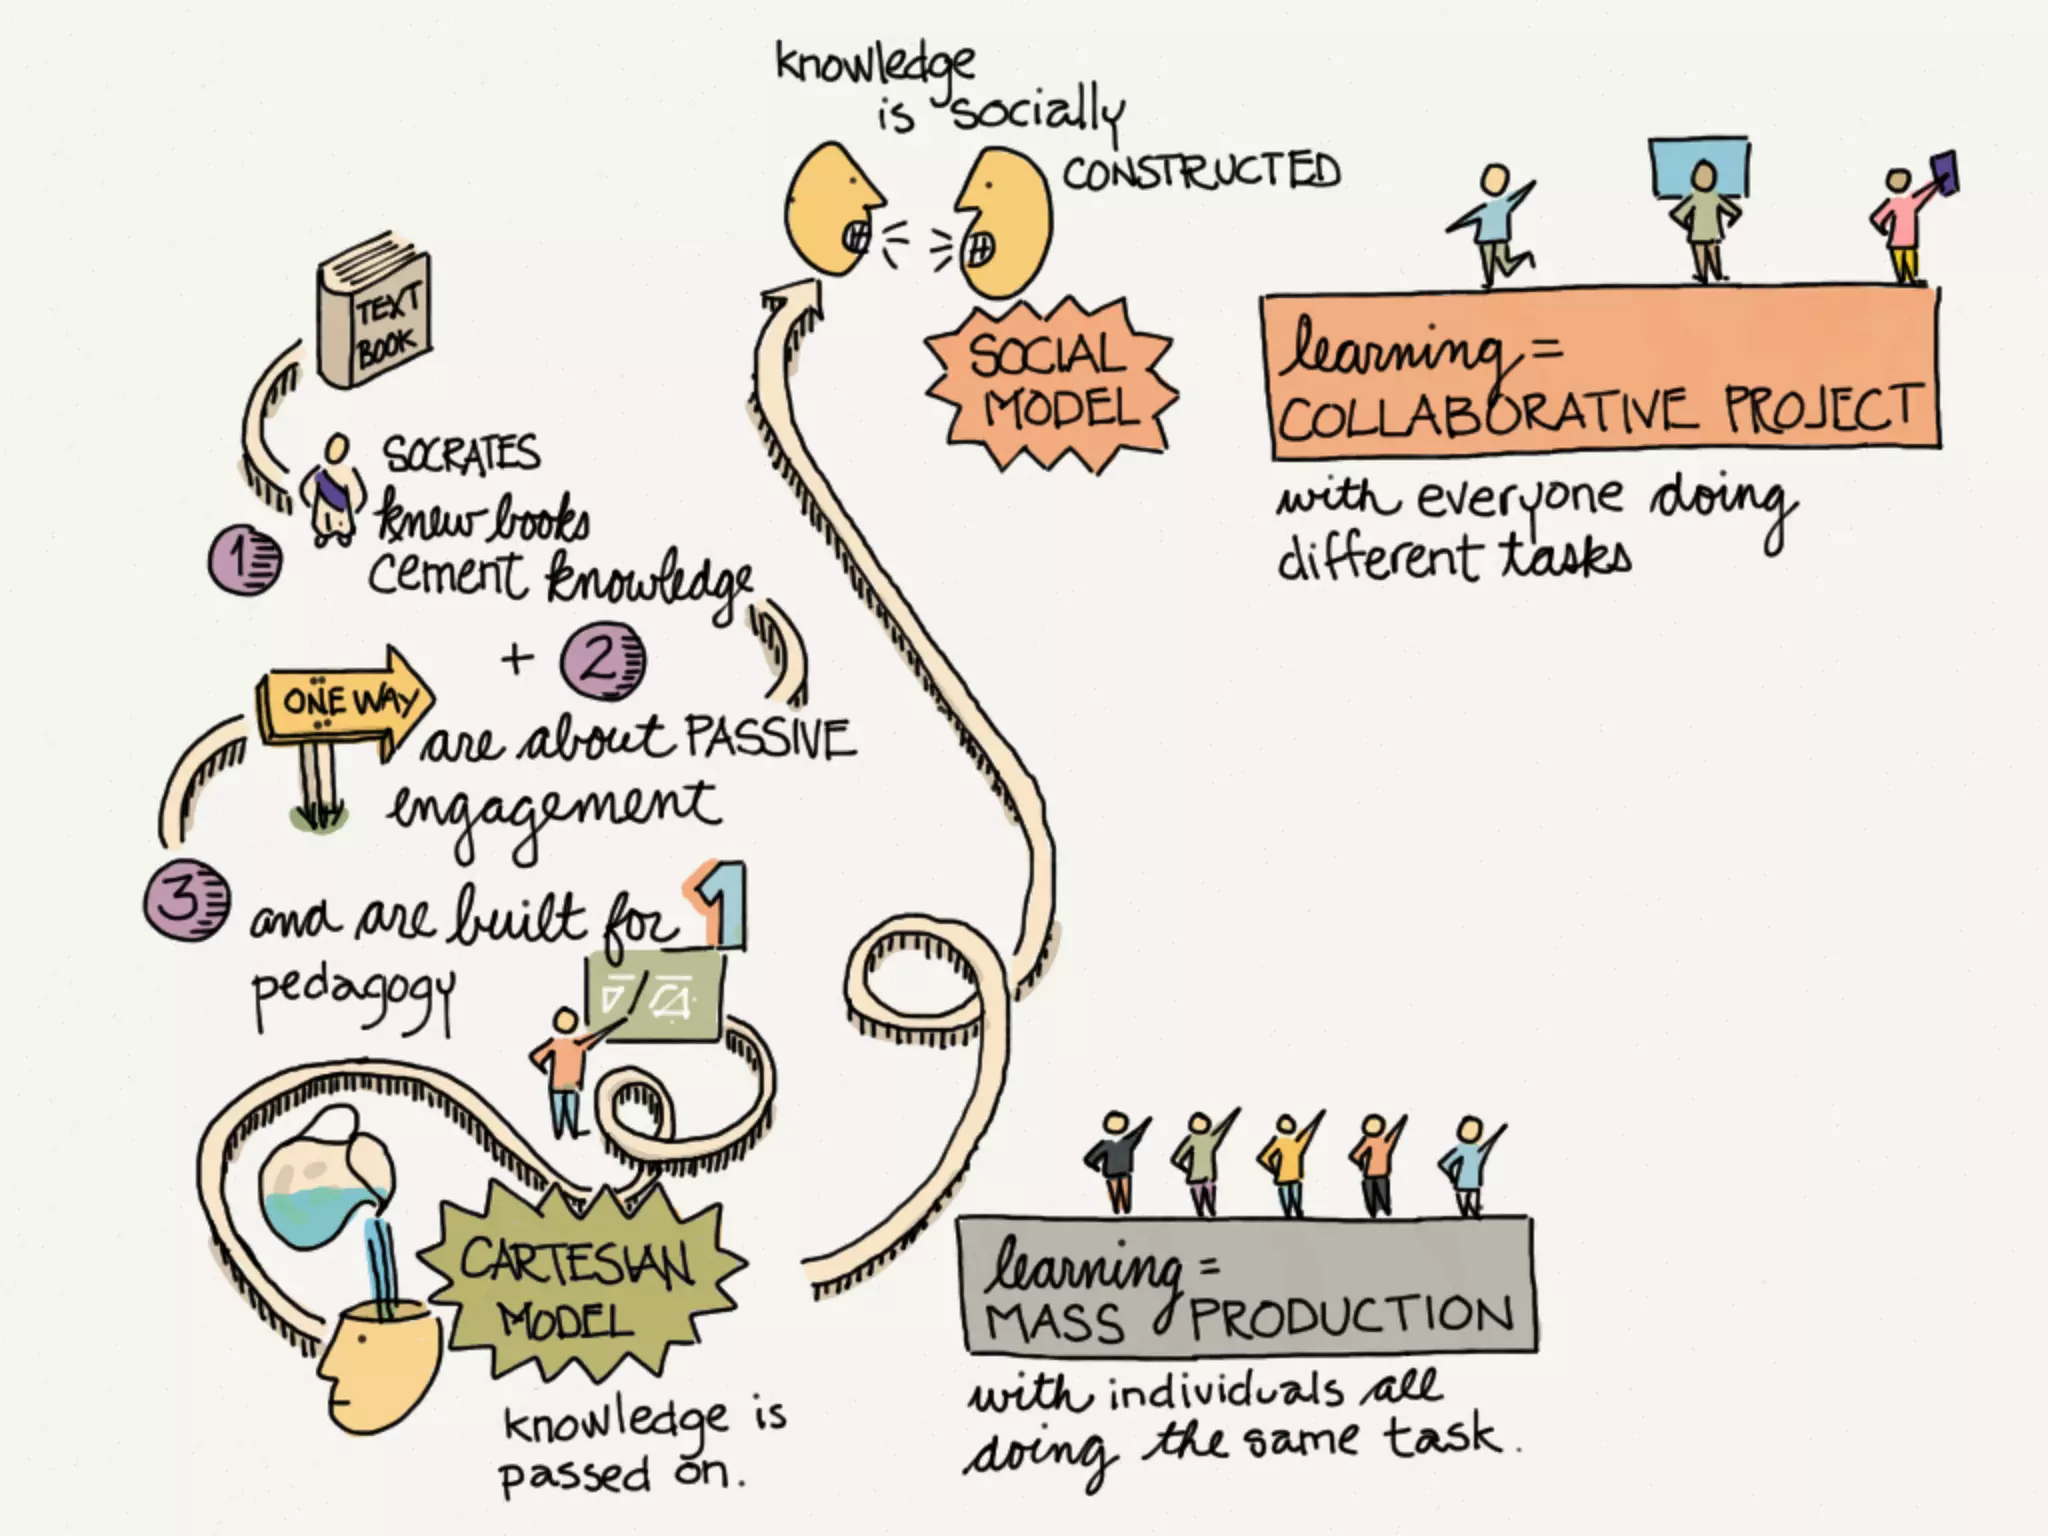 knowledge
is socially
CONSTRUCTED
SOCIAL
MODEL
learning =
COLLABORATIVE PROJECT
with everyone doing
different tasks
TEXT
BOOK
1
SOCRATES
knew books
cement knowledge
+ 2
ONE WAY
are about PASSIVE
engagement
3
and are built for 1
pedagogy
CARTESIAN
MODEL
knowledge is
passed on.
learning =
MASS PRODUCTION
with individuals all
doing the same task.